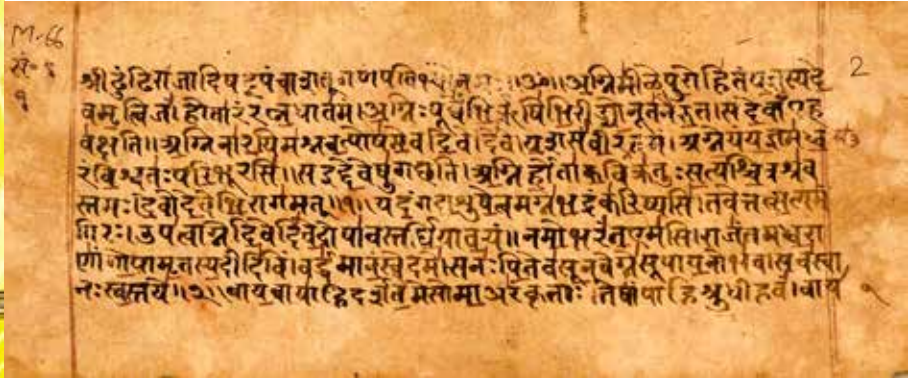 M-66
2
श्रीढुंढिराजादिषट्पंचाशत्गणपतिभ्योनमः॥ॐ॥अग्निमीळेपुरोहितंयज्ञस्यदे
वमृत्विजं।होतारंरत्नधातमं।अग्निःपूर्वेभिर्ऋषिभिरीड्योनूतनैरुत।सदेवाँएह
वक्षति॥अग्निनारयिमश्नवत्पोषमेवदिवेदिवे।यशसंवीरवत्तमं।अग्नेयंयज्ञमध्व
रंविश्वतःपरिभूरसि॥सइद्देवेषुगछति।अग्निर्होताकविक्रतुःसत्यश्चित्रश्रव
स्तमः।देवोदेवेभिरागमत्॥१॥यदंगदाशुषेत्वमग्नेभद्रंकरिष्यसि।तवेत्तत्सत्यमं
गिरः।उपत्वाग्नेदिवेदिवेदोषावस्तर्धियावयं॥नमोभरंतएमसि।राजंतमध्वरा
णांगोपामृतस्यदीदिविं।वर्द्धमानंस्वेदमे।सनःपितेवसूनवेग्नेसूपायनोभव।सचस्वा
नःस्वस्तये॥२॥वायवायाहिदर्शतेमेसोमाअरंकृताः।तेषांपाहिश्रुधीहवं।वाय
१